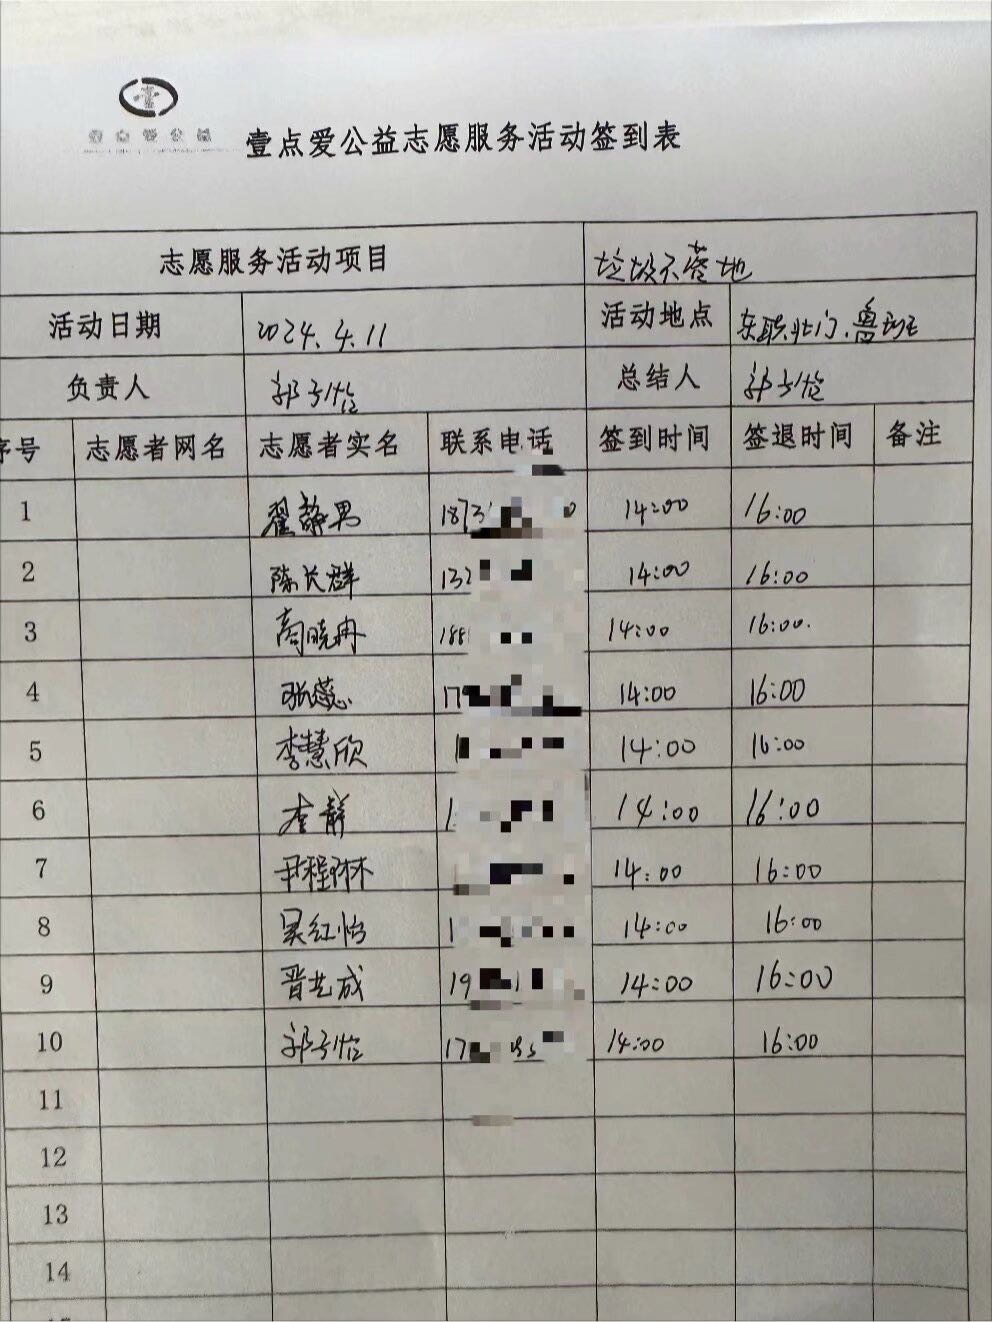 壹点爱公益
壹点爱公益志愿服务活动签到表
志愿服务活动项目 垃圾不落地
活动日期 2024.4.11 活动地点 东职北门、鲁班
负责人 郭子怡 总结人 郭子怡
序号 志愿者网名 志愿者实名 联系电话 签到时间 签退时间 备注
1 翟静男 1873 0 14:00 16:00
2 陈长群 132 14:00 16:00
3 商晓冉 188 14:00 16:00.
4 张蕊 17 14:00 16:00
5 李慧欣 1 14:00 16:00
6 李静 1 14:00 16:00
7 尹程琳 14:00 16:00
8 吴红怡 1 14:00 16:00
9 晋艺成 19 14:00 16:00
10 郭子怡 17 14:00 16:00
11
12
13
14